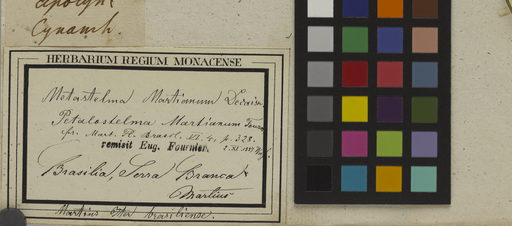 Apocyn.
Cynanch.
HERBARIUM REGIUM MONACENSE
Metastelma Martianum Decaisn.
Petalostelma Martianum Fourn.
cfr. Mart. Fl. Brasil. VI. 4. p. 328.
remisit Eug. Fournier.
Brasilia, Serra Branca
Martius
Martius Iter brasiliense.